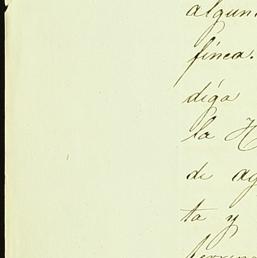 algun
finca.
diga
la H
de ag
ta y